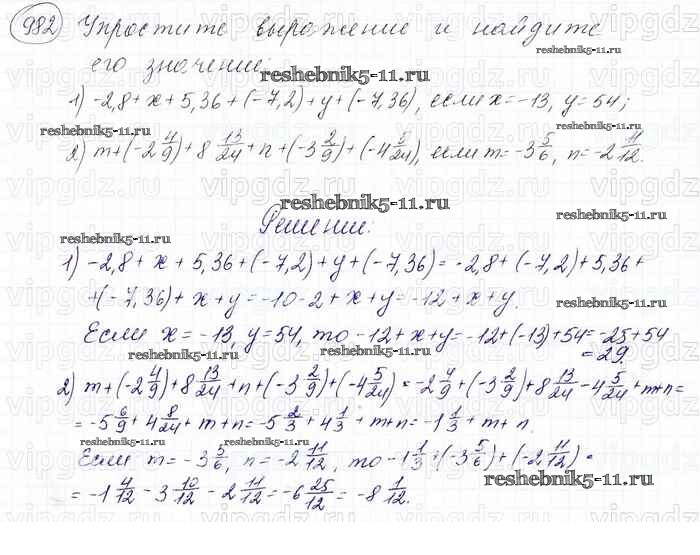 982 Упростите выражение и найдите
его значение:
1) -2,8 + x + 5,36 + (-7,2) + y + (-7,36), если x = -13, y = 54;
2) m + (-2 4/9) + 8 13/24 + n + (-3 2/9) + (-4 5/24), если m = -3 5/6, n = -2 11/12.
Решение:
1) -2,8 + x + 5,36 + (-7,2) + y + (-7,36) = -2,8 + (-7,2) + 5,36 +
+ (-7,36) + x + y = -10 - 2 + x + y = -12 + x + y.
Если x = -13, y = 54, то -12 + x + y = -12 + (-13) + 54 = -25 + 54
= 29.
2) m + (-2 4/9) + 8 13/24 + n + (-3 2/9) + (-4 5/24) = -2 4/9 + (-3 2/9) + 8 13/24 - 4 5/24 + m + n =
= -5 6/9 + 4 8/24 + m + n = -5 2/3 + 4 1/3 + m + n = -1 1/3 + m + n.
Если m = -3 5/6, n = -2 11/12, то -1 1/3 + (-3 5/6) + (-2 11/12) =
= -1 4/12 - 3 10/12 - 2 11/12 = -6 25/12 = -8 1/12.
reshebnik5-11.ru
reshebnik5-11.ru
reshebnik5-11.ru
reshebnik5-11.ru
reshebnik5-11.ru
reshebnik5-11.ru
reshebnik5-11.ru
reshebnik5-11.ru
reshebnik5-11.ru
reshebnik5-11.ru
reshebnik5-11.ru
reshebnik5-11.ru
reshebnik5-11.ru
vipgdz.ru